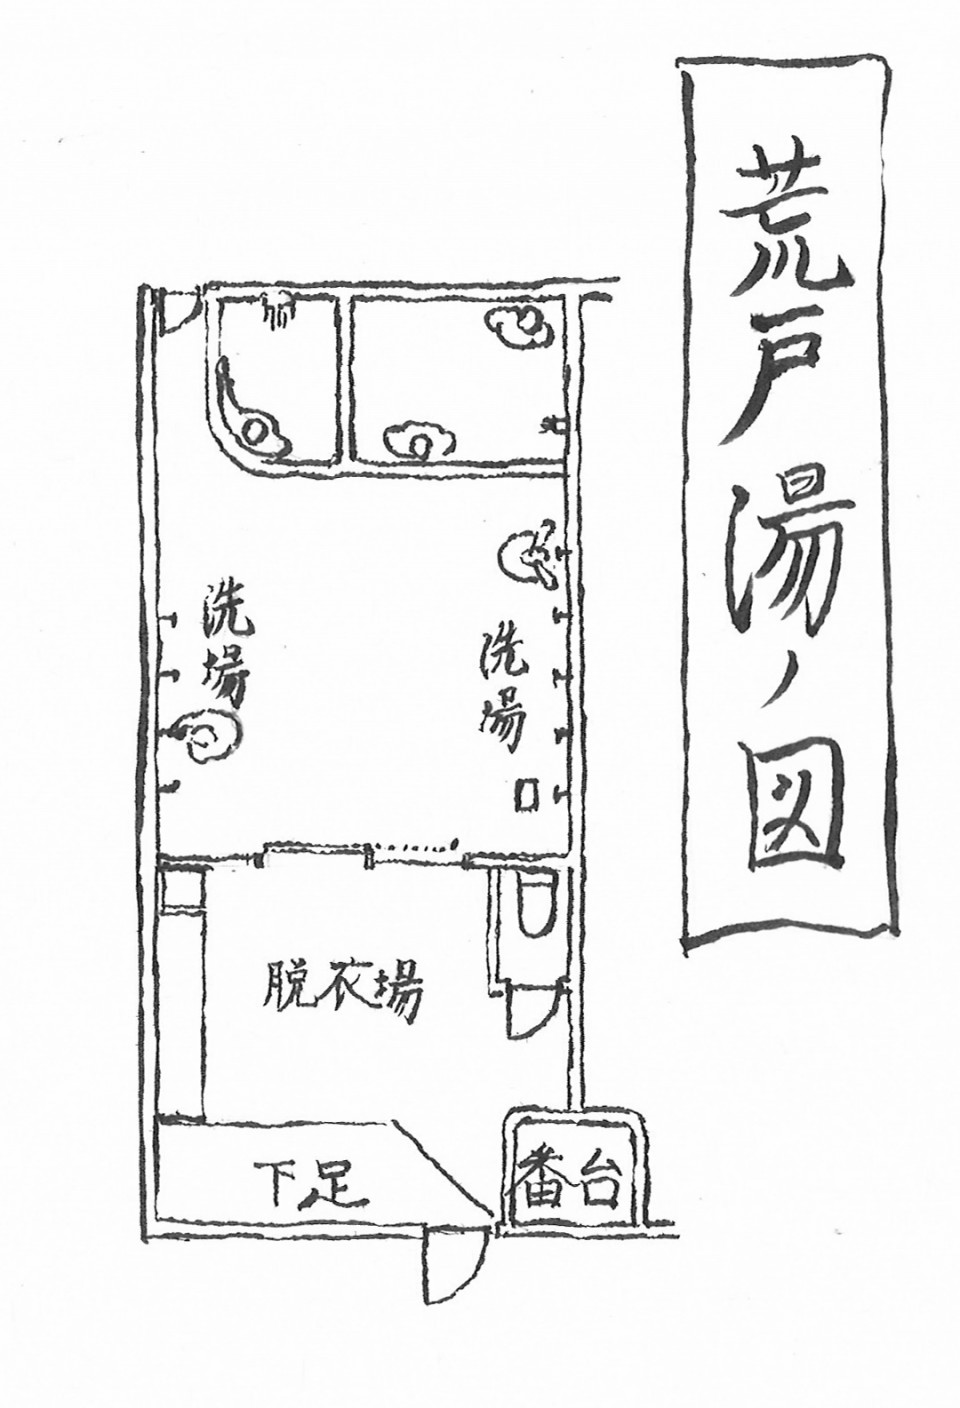 荒戸湯ノ図
洗場
洗場
脱衣場
下足
番台